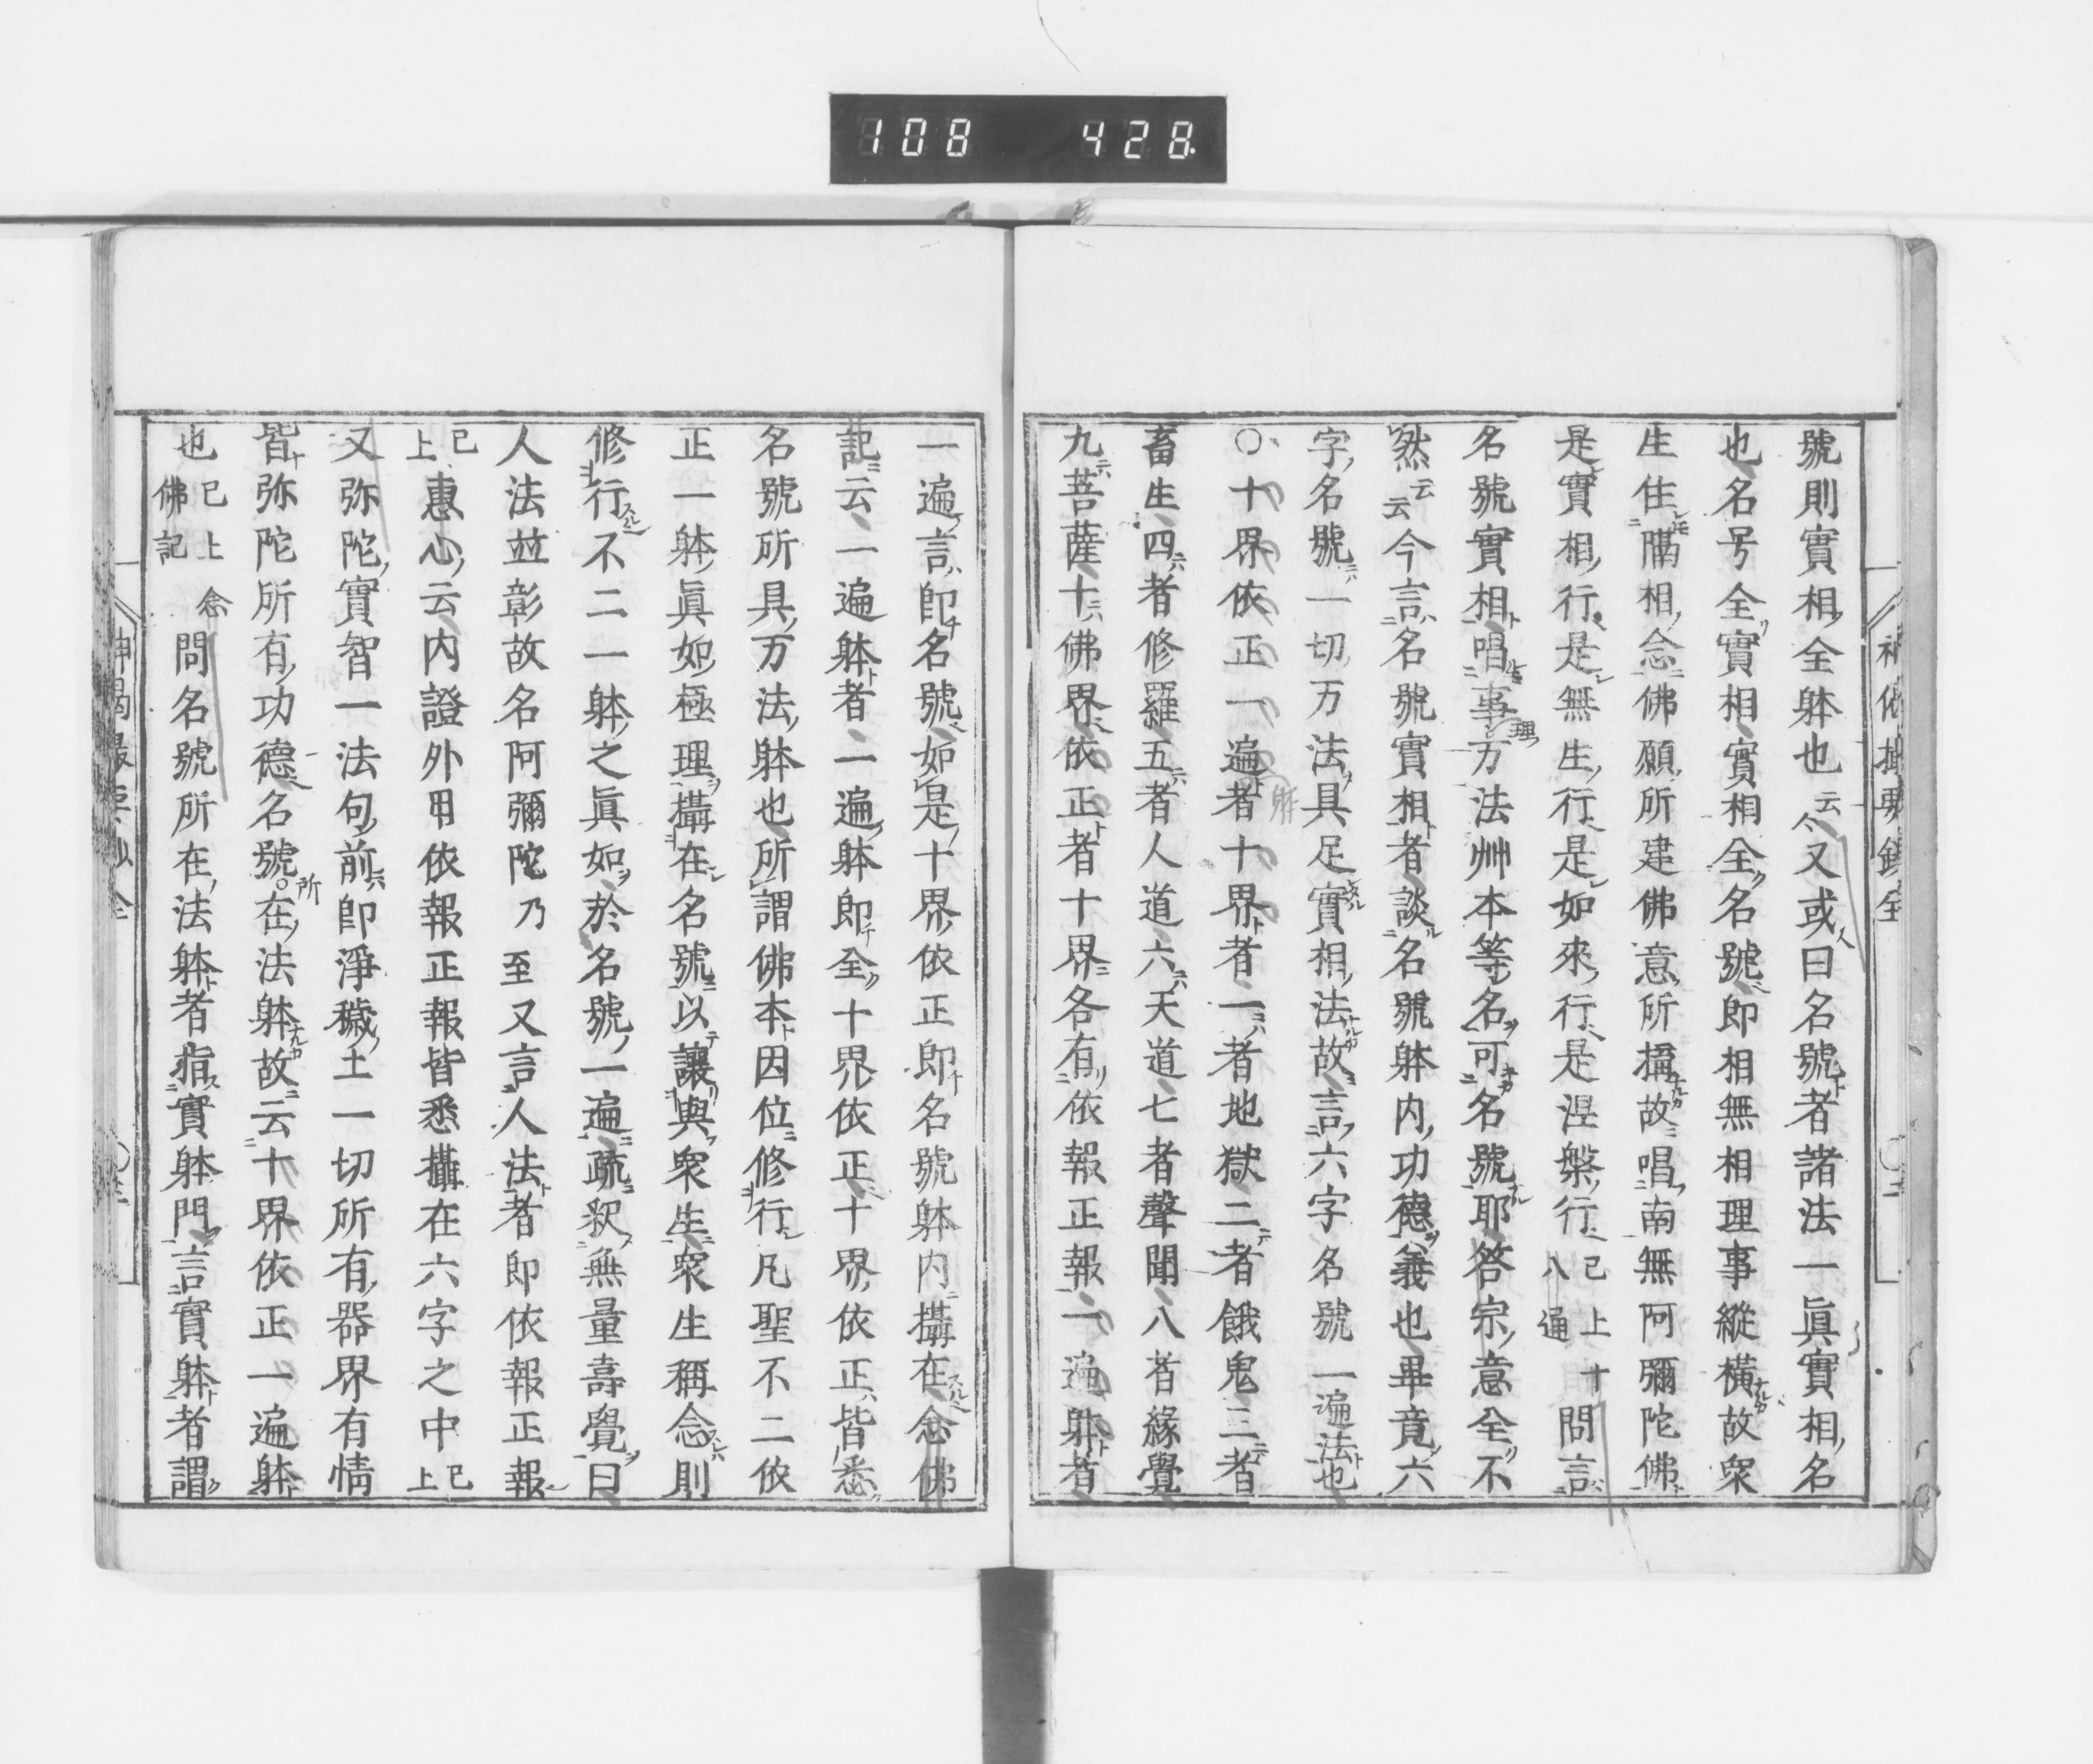 108 428
號則實相全躰也云云又或曰名號者諸法一眞實相名
也名号全實相實相全名號即相無相理事縱橫故衆
生住隔相念佛願所建佛意所稱故唱南無阿彌陀佛
是實相行是無生行是如來行是涅槃行已上十八通問言
名號實相唱事万法艸本等名可名號耶答宗意全不
然云云今言名號實相者談名號躰内功德義也畢竟六
字名號一切万法具足實相法故言六字名號一遍法也
○十界依正一遍者十界者一者地獄二者餓鬼三者
畜生四者修羅五者人道六天道七者聲聞八者緣覺
九菩薩十佛界依正者十界各有依報正報一遍躰者
一遍言即名號如是十界依正即名號躰内攝在念佛
記云一遍躰者一遍躰即全十界依正十界依正皆悉
名號所具万法躰也所謂佛本因位修行凡聖不二依
正一躰眞如極理攝在名號以讓與衆生衆生稱念則
修行不二一躰之眞如於名號一遍疏釈無量壽覺曰
人法並彰故名阿彌陀乃至又言人法者即依報正報
已上惠心云内證外用依報正報皆悉攝在六字之中已上
又弥陀實智一法句前即淨穢土一切所有器界有情
皆弥陀所有功德名號所在法躰故云十界依正一遍躰
也已上念佛記問名號所在法躰者指實躰門言實躰者謂